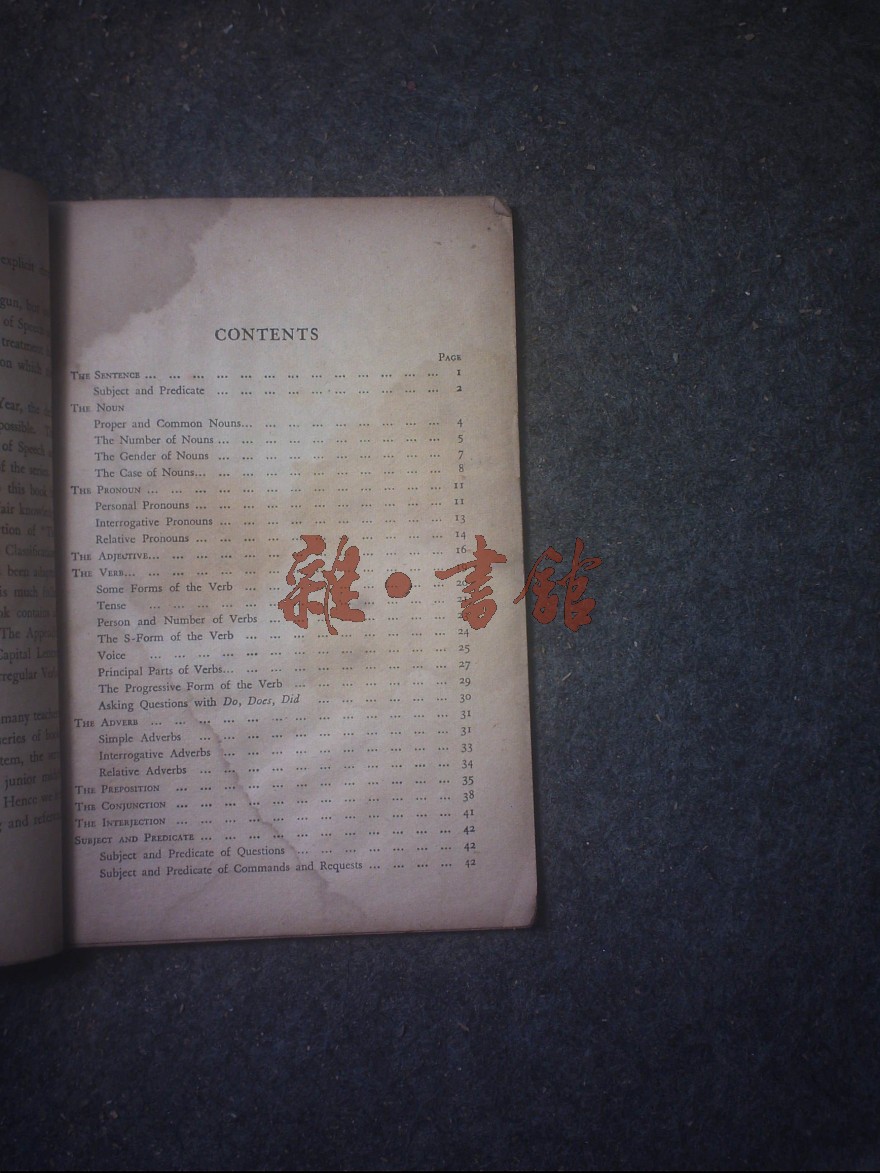 explicit
gun, but
of Speech
treatment
on which
Year, the
possible. T
of Speech
f the series
this book
air knowle
tion of "T
Classification
been
is much
ok contains
The Appr
Capital Lette
rregular Ve
many teacher
eries of
tem, the
junior
Hence we
g and refere
CONTENTS
PAGE
THE SENTENCE ... ... ... ... ... ... ... ... ... ... ... ... ... 1
Subject and Predicate ... ... ... ... ... ... ... ... ... ... 2
THE NOUN
Proper and Common Nouns... ... ... ... ... ... ... ... ... 4
The Number of Nouns ... ... ... ... ... ... ... ... ... ... 5
The Gender of Nouns ... ... ... ... ... ... ... ... ... ... 7
The Case of Nouns... ... ... ... ... ... ... ... ... ... ... 8
THE PRONOUN ... ... ... ... ... ... ... ... ... ... ... ... ... 11
Personal Pronouns ... ... ... ... ... ... ... ... ... ... ... 11
Interrogative Pronouns ... ... ... ... ... ... ... ... ... ... 13
Relative Pronouns ... ... ... ... ... ... ... ... ... ... ... 14
THE ADJECTIVE... ... ... ... ... ... ... ... ... ... ... ... ... 16
THE VERB... ... ... ... ... ... ... ...
Some Forms of the Verb ... ... ... ... ... ... ... ... ... 20
Tense ... ... ... ... ... ... ... ... ... ...
Person and Number of Verbs ... ... ... ... ... ... ... ...
The S-Form of the Verb ... ... ... ... ... ... ... ... ... 24
Voice ... ... ... ... ... ... ... ... ... ... ... ... ... 25
Principal Parts of Verbs... ... ... ... ... ... ... ... ... ... 27
The Progressive Form of the Verb ... ... ... ... ... ... ... 29
Asking Questions with Do, Does, Did ... ... ... ... ... ... 30
THE ADVERB ... ... ... ... ... ... ... ... ... ... ... ... ... 31
Simple Adverbs ... ... ... ... ... ... ... ... ... ... ... 31
Interrogative Adverbs ... ... ... ... ... ... ... ... ... ... 33
Relative Adverbs ... ... ... ... ... ... ... ... ... ... ... 34
THE PREPOSITION ... ... ... ... ... ... ... ... ... ... ... ... 35
THE CONJUNCTION ... ... ... ... ... ... ... ... ... ... ... ... 38
THE INTERJECTION ... ... ... ... ... ... ... ... ... ... ... ... 41
SUBJECT AND PREDICATE ... ... ... ... ... ... ... ... ... ... ... 42
Subject and Predicate of Questions ... ... ... ... ... ... ... 42
Subject and Predicate of Commands and Requests ... ... ... ... 42
雜·書館